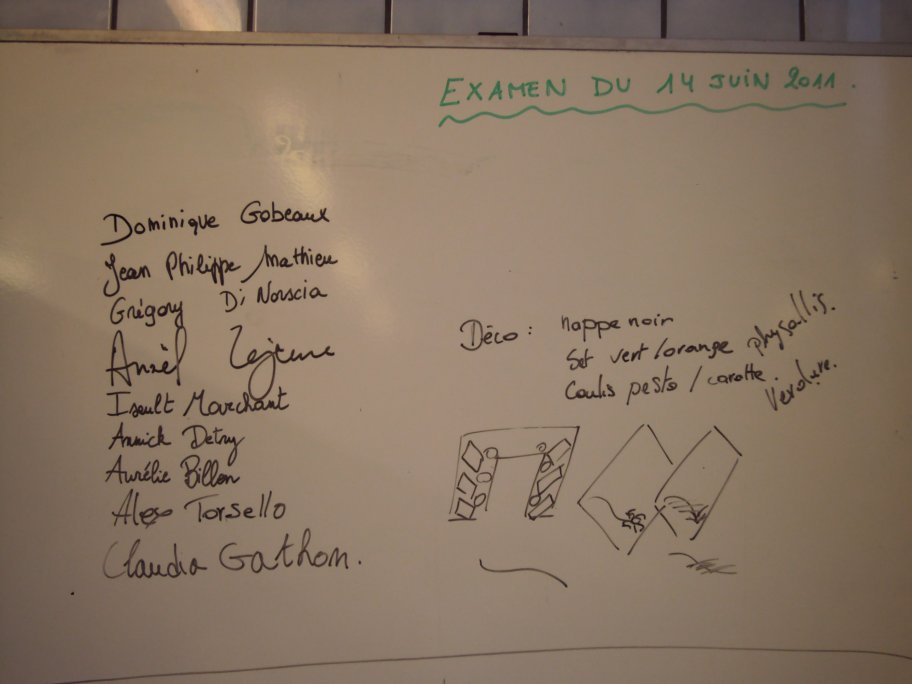 EXAMEN DU 14 JUIN 2011.
Dominique Gobeaux
Jean Philippe Mathieu
Grégory Di Norscia
Anaël Lejeune
Iseult Marchant
Annick Detry
Aurélie Billen
Torsello
Claudia Gathon.
Déco : nappe noir
Set vert/orange physallis.
Coulis pesto / carotte. Verdure.